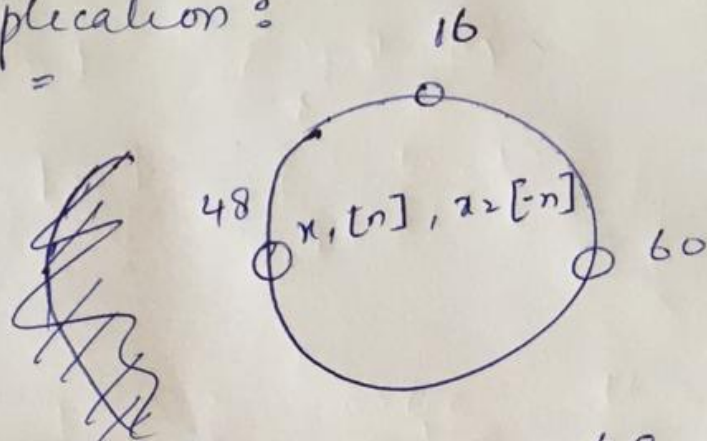 plication :
=
16
48
x₁[n], x₂[-n]
60